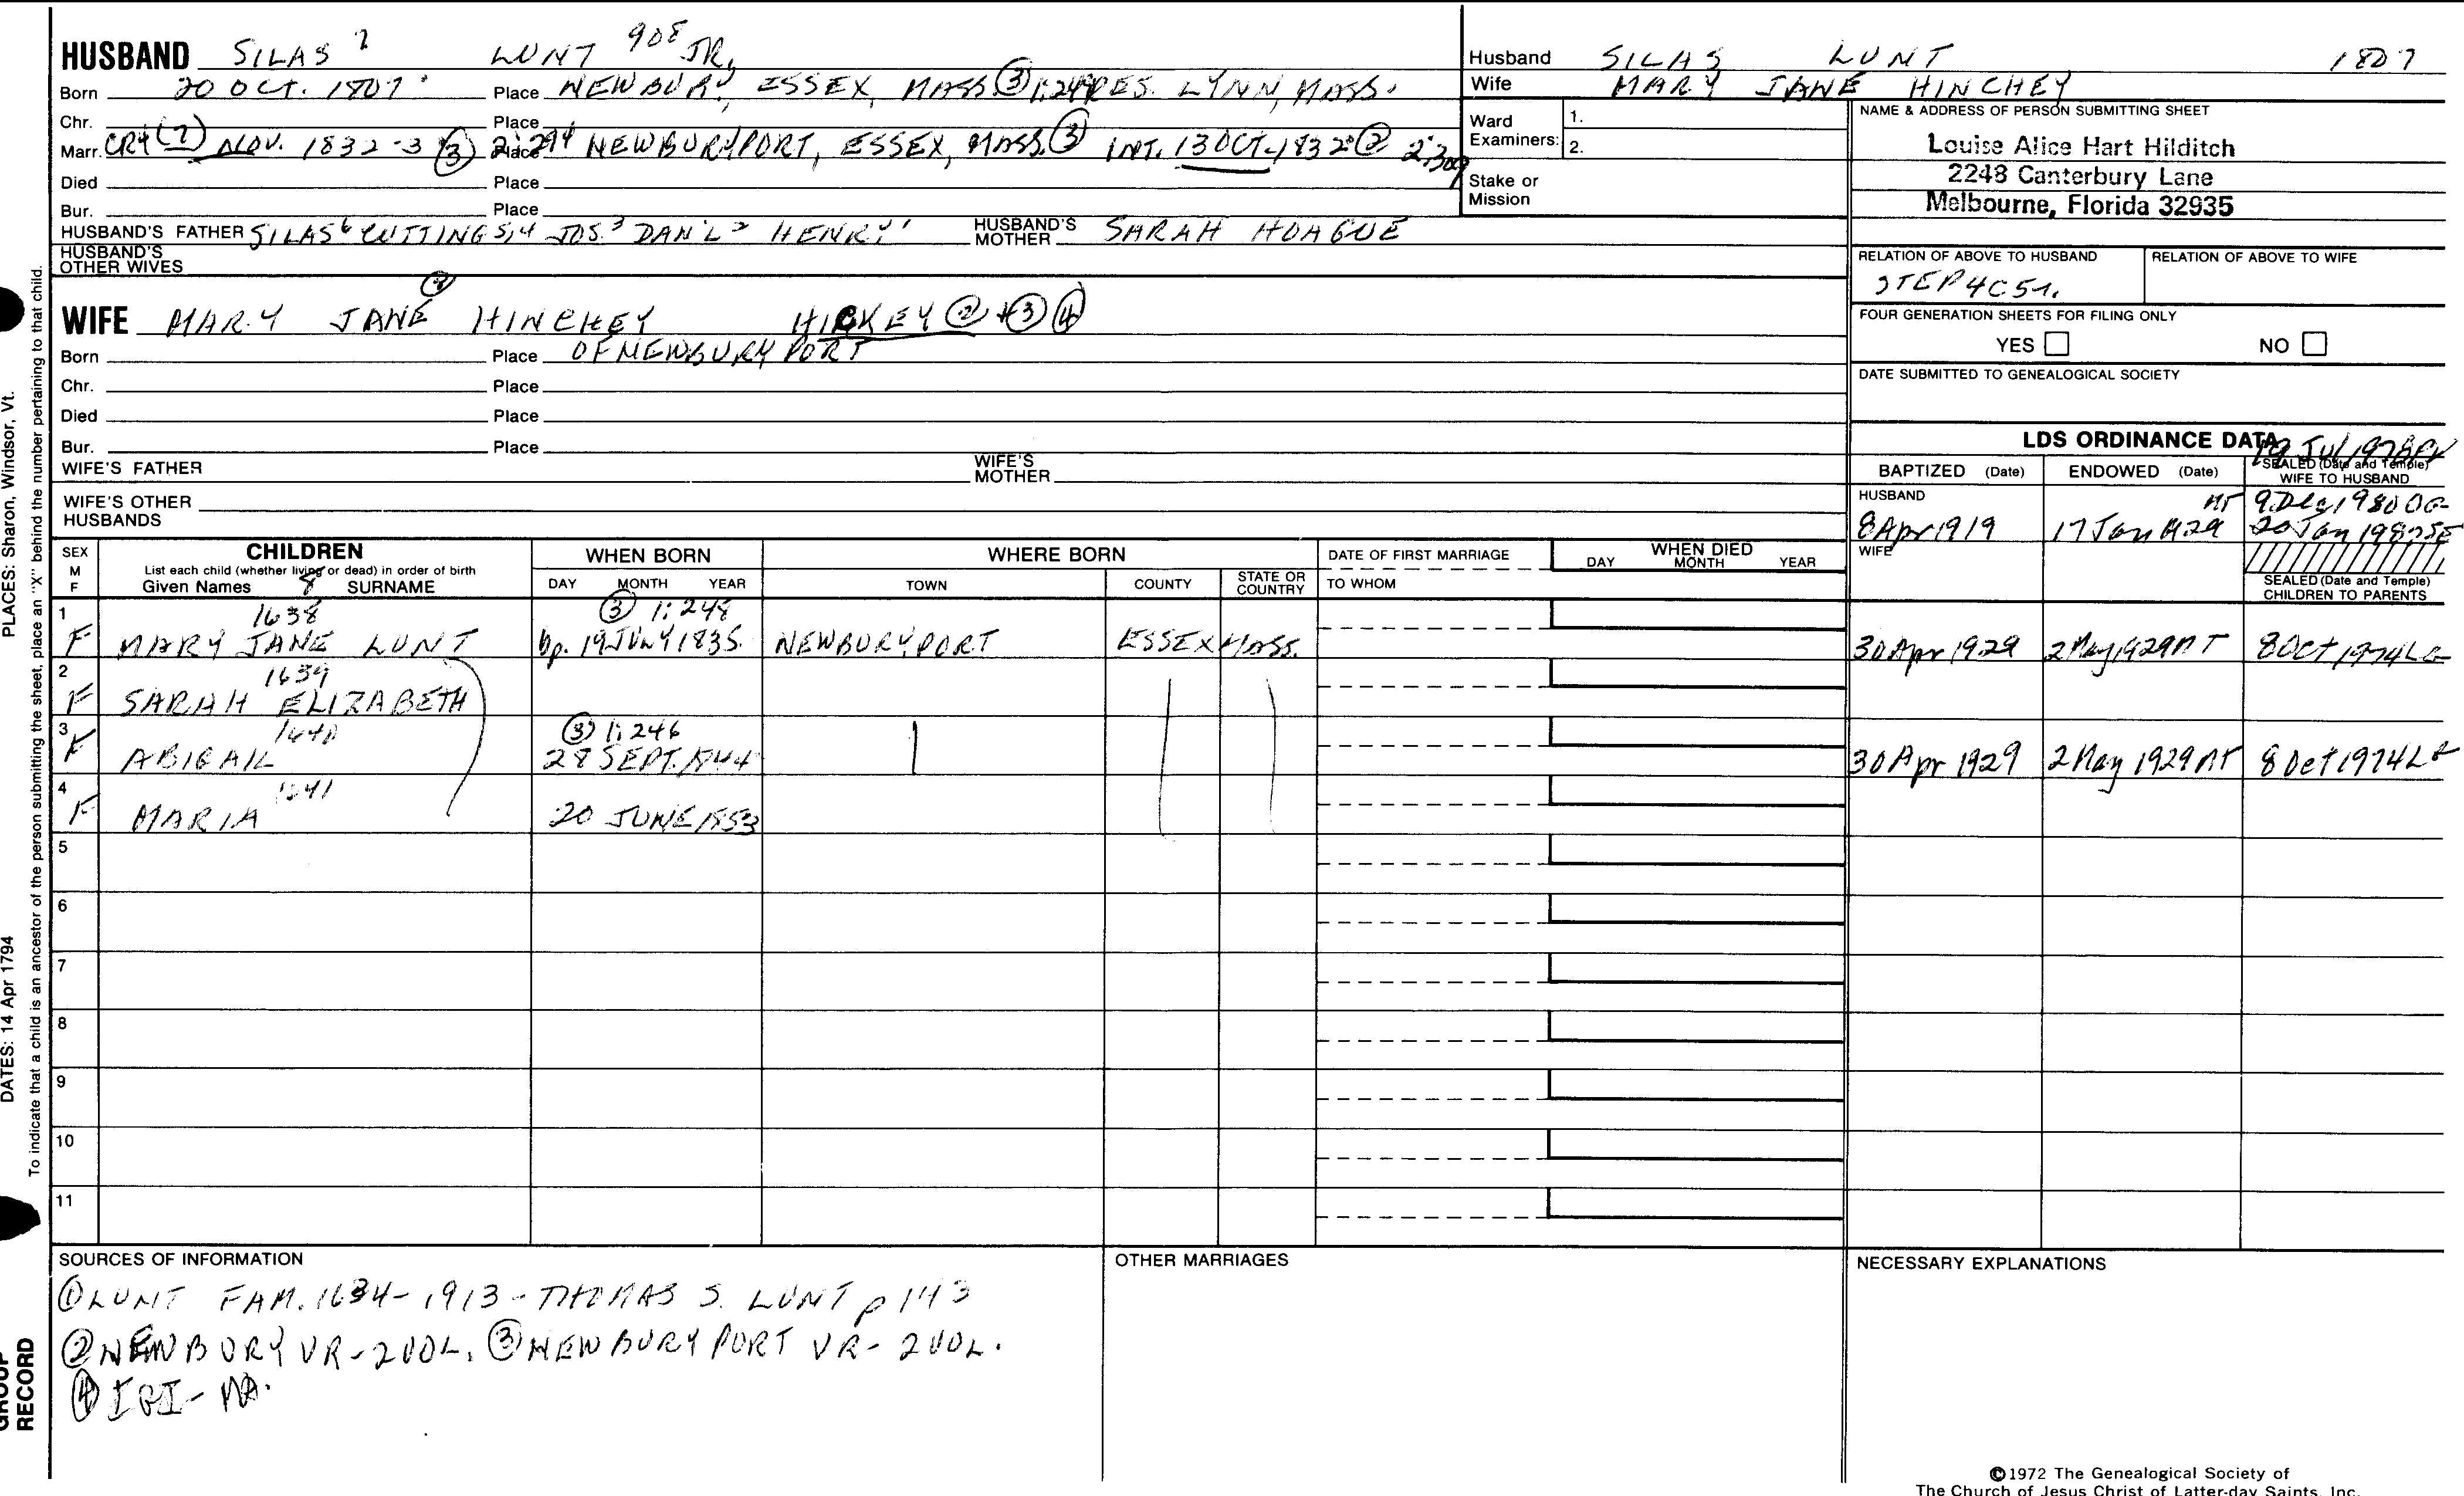 HUSBAND SILAS 7 LUNT 908 JR.
Born 20 OCT. 1807 Place NEWBURY, ESSEX, MASS. ③ 1:249 RES. LYNN, MASS.
Chr. Place
Marr. CR4 (7) NOV. 1832-3 ③ 2:294 Place NEWBURYPORT, ESSEX, MASS. ③ INT. 13 OCT. 1832 ② 2:309
Died Place
Bur. Place
HUSBAND'S FATHER SILAS 6 CUTTING 5,4 JOS. 3 DAN'L 2 HENRY 1 HUSBAND'S MOTHER SARAH HOAGUE
HUSBAND'S OTHER WIVES
WIFE MARY JANE HINCHEY HICKEY ② + ③ ④
Born Place OF NEWBURYPORT
Chr. Place
Died Place
Bur. Place
WIFE'S FATHER WIFE'S MOTHER
WIFE'S OTHER HUSBANDS
Husband SILAS LUNT 1807
Wife MARY JANE HINCHEY
Ward Examiners: 1. 2.
Stake or Mission
NAME & ADDRESS OF PERSON SUBMITTING SHEET
Louise Alice Hart Hilditch
2248 Canterbury Lane
Melbourne, Florida 32935
RELATION OF ABOVE TO HUSBAND RELATION OF ABOVE TO WIFE
STEP 4C5
FOUR GENERATION SHEETS FOR FILING ONLY
YES NO
DATE SUBMITTED TO GENEALOGICAL SOCIETY
LDS ORDINANCE DATA
19 Jul 1978
BAPTIZED (Date) ENDOWED (Date) SEALED (Date and Temple) WIFE TO HUSBAND
HUSBAND
8 Apr 1919 17 Jan 1929 9 Dec 1980 OG
20 Jan 1982 SE
WIFE
SEALED (Date and Temple) CHILDREN TO PARENTS
SEX M F
CHILDREN
List each child (whether living or dead) in order of birth
Given Names 8 SURNAME
WHEN BORN
DAY MONTH YEAR
WHERE BORN
TOWN COUNTY STATE OR COUNTRY
DATE OF FIRST MARRIAGE
TO WHOM
WHEN DIED
DAY MONTH YEAR
1 1638 ③ 1:248
F MARY JANE LUNT bp. 19 JULY 1835 NEWBURYPORT ESSEX MASS. 30 Apr 1929 2 May 1929 NT 8 Oct 1974 LG
2 1639
F SARAH ELIZABETH
3 1640 ③ 1:246
F ABIGAIL 28 SEPT. 1844 30 Apr 1929 2 May 1929 NT 8 Oct 1974 LG
4 1641
F MARIA 20 JUNE 1853
5
6
7
8
9
10
11
SOURCES OF INFORMATION
① LUNT FAM. 1634-1913 - THOMAS S. LUNT p 143
② NEWBURY VR-2VOL. ③ NEWBURYPORT VR-2VOL.
④ IGI - MA.
OTHER MARRIAGES
NECESSARY EXPLANATIONS
©1972 The Genealogical Society of
The Church of Jesus Christ of Latter-day Saints, Inc.
PLACES: Sharon, Windsor, Vt.
DATES: 14 Apr 1794
To indicate that a child is an ancestor of the person submitting the sheet, place an "X" behind the number pertaining to that child.
GROUP
RECORD